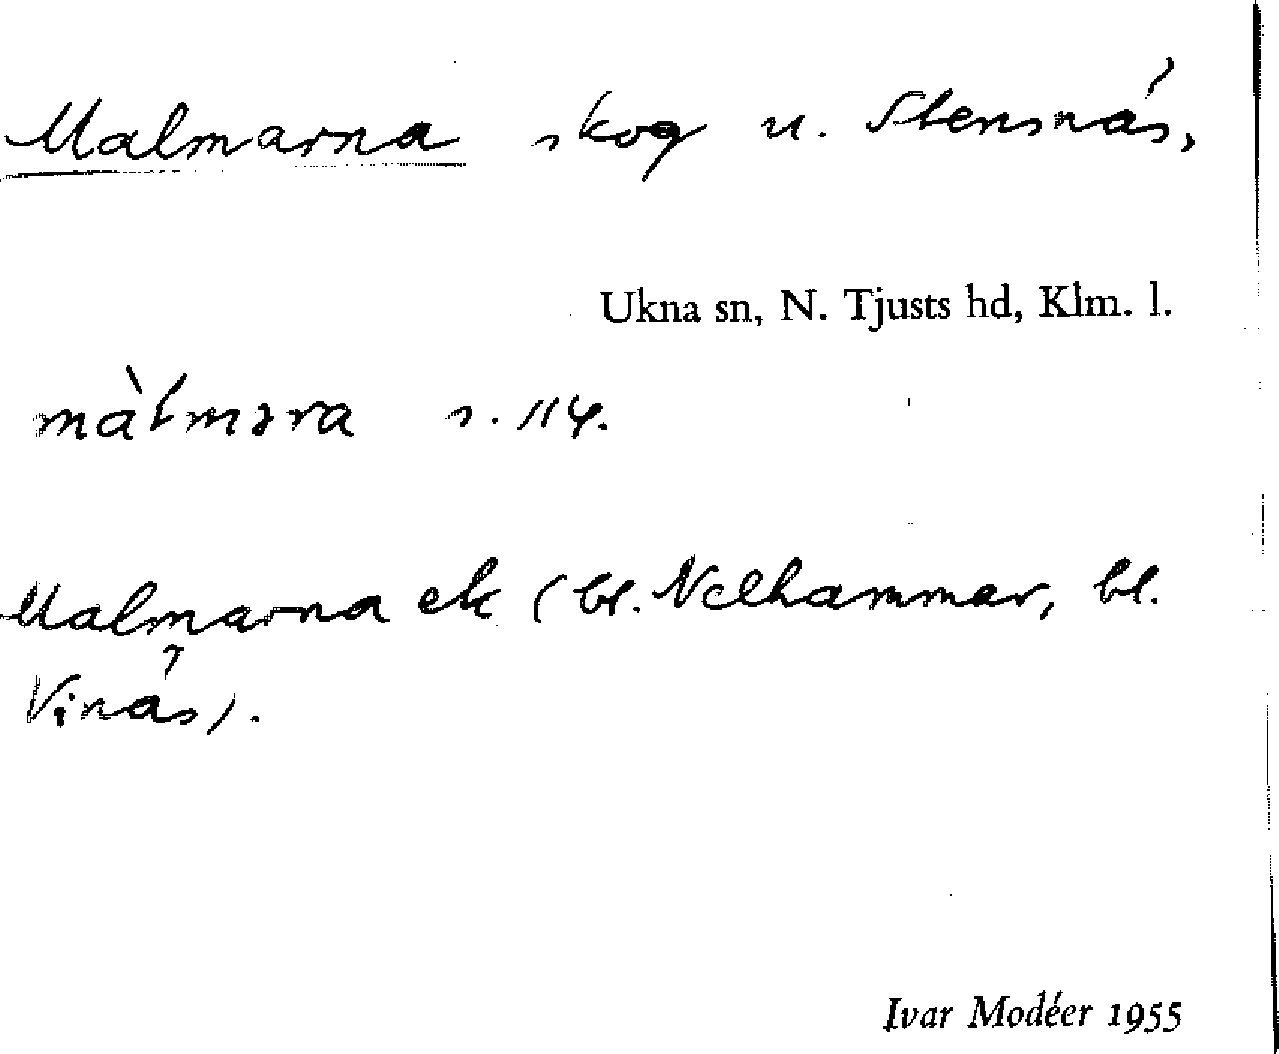 Malmarna skog u. Stensnäs,
Ukna sn, N. Tjusts hd, Klm. l.
màłmǝra s. 114.
Malmarna ek (bl. Nelhammar, bl.
Vinäs).
Ivar Modéer 1955